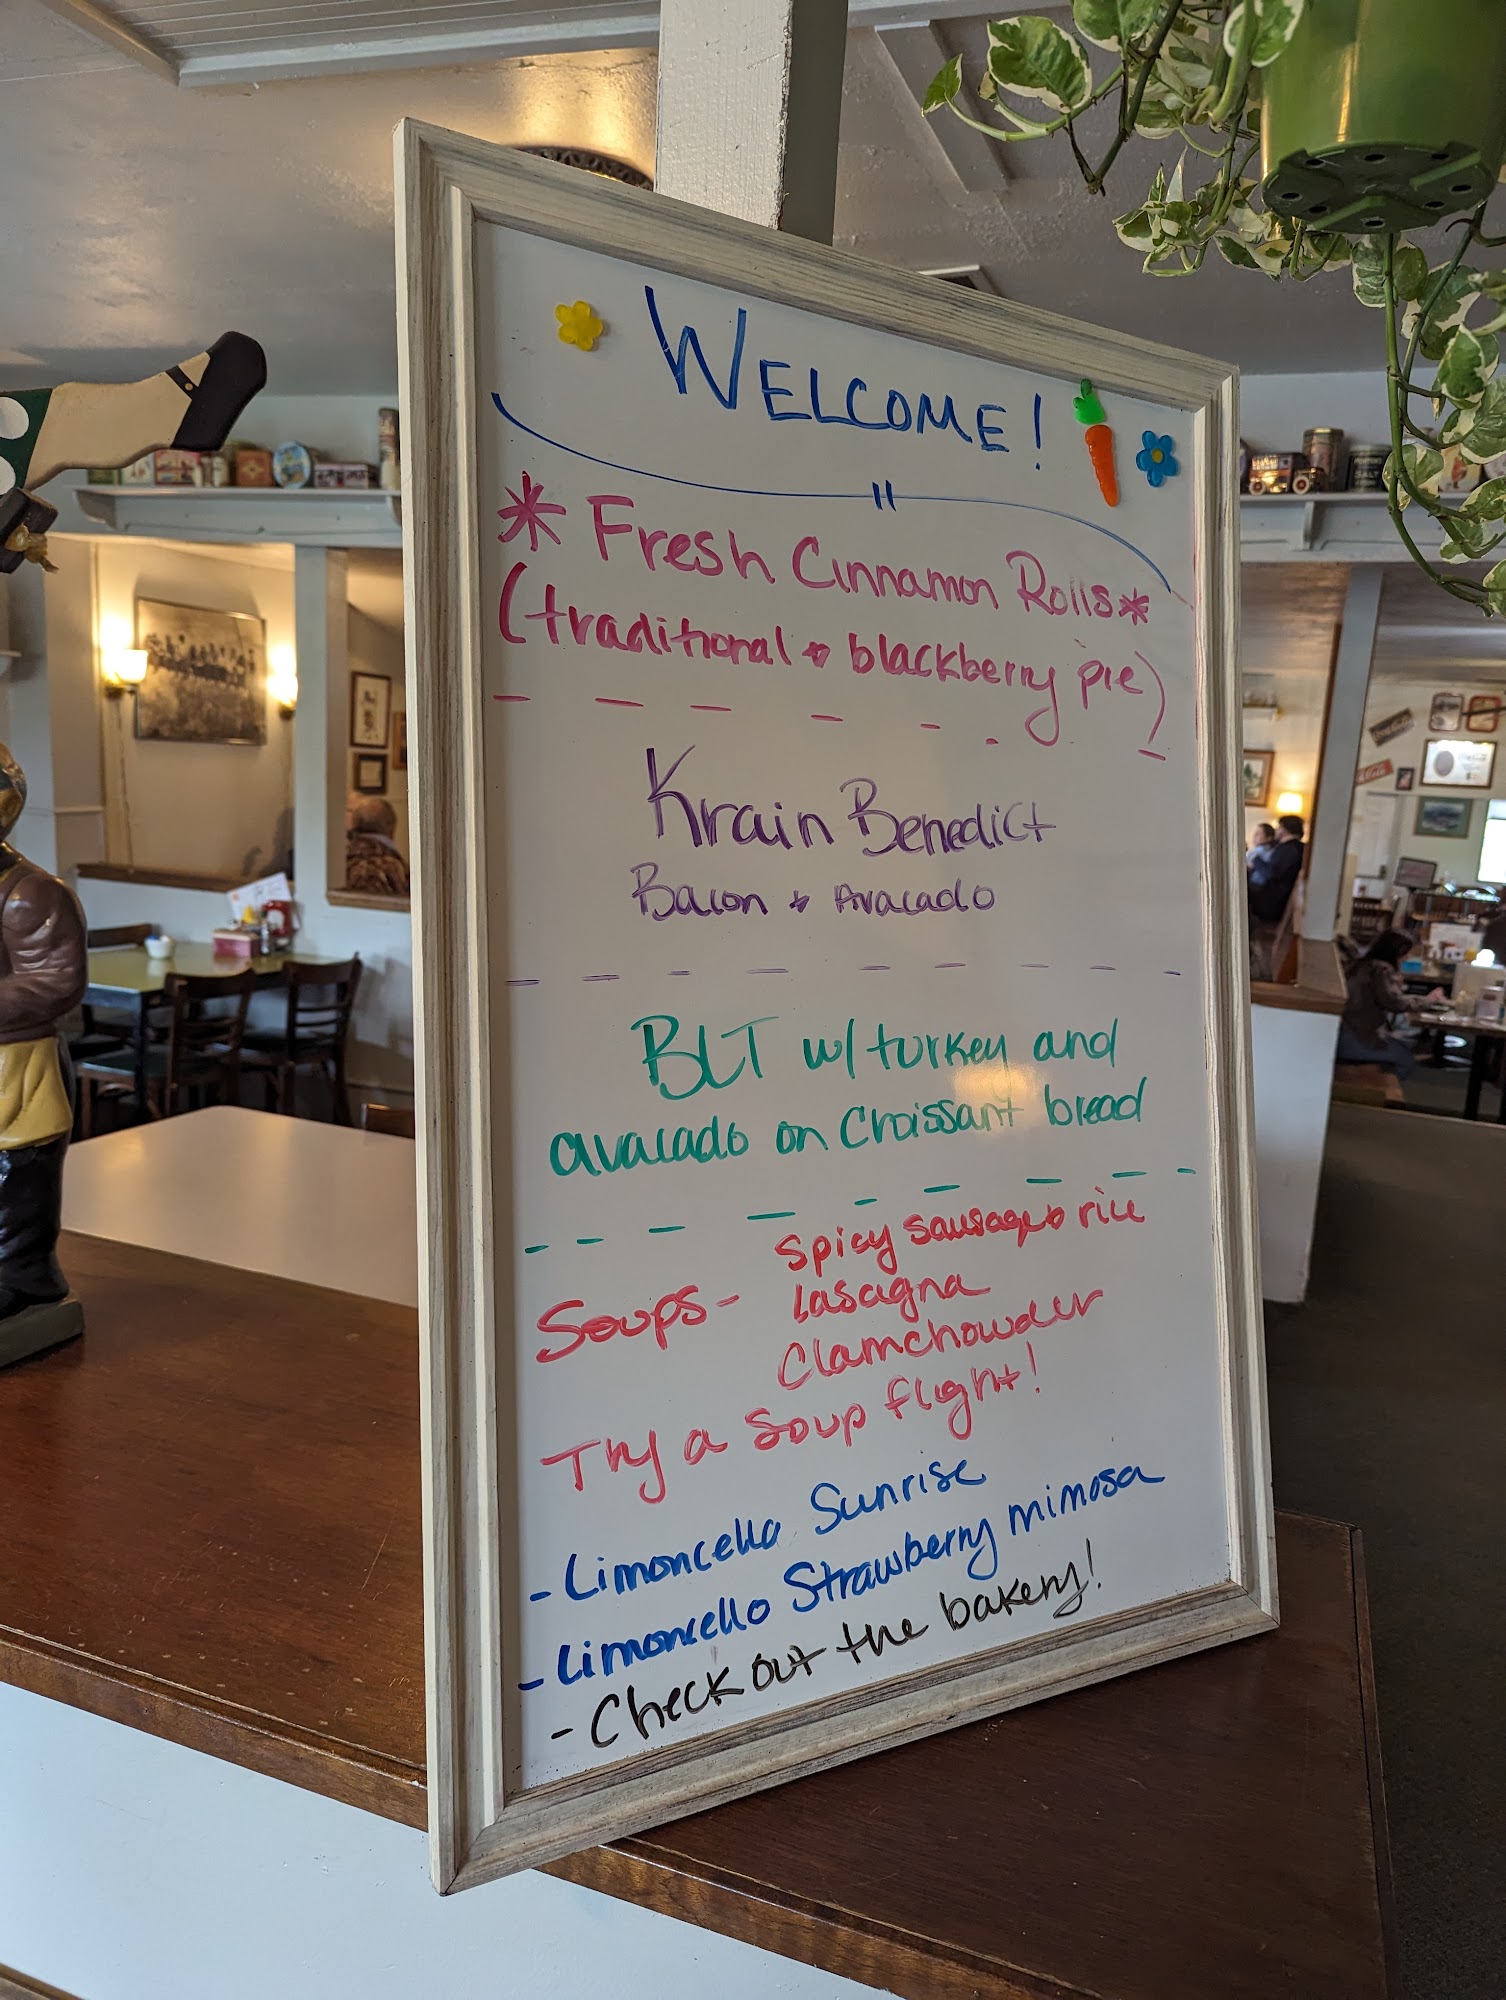 WELCOME!
* Fresh Cinnamon Rolls *
(traditional + blackberry pie)
Krain Benedict
Bacon + Avacado
BLT w/ turkey and
avacado on Croissant bread
Soups - Spicy sausage & rice
lasagna
Clamchowder
Try a Soup flight!
- Limoncello Sunrise
- Limoncello Strawberry mimosa
- Check out the bakery!